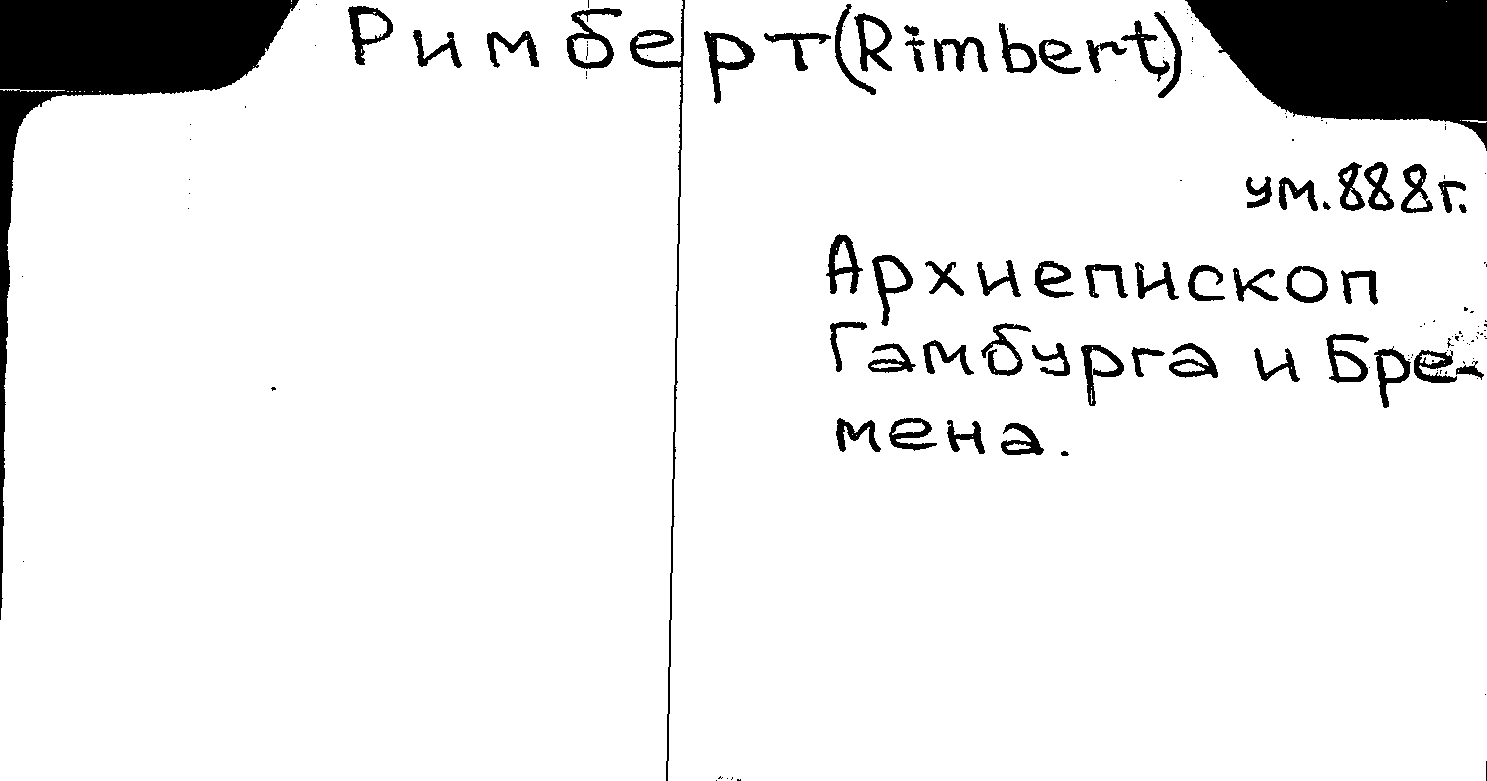 Римберт (Rimbert)
ум. 888 г.
Архиепископ
Гамбурга и Бре-
мена.